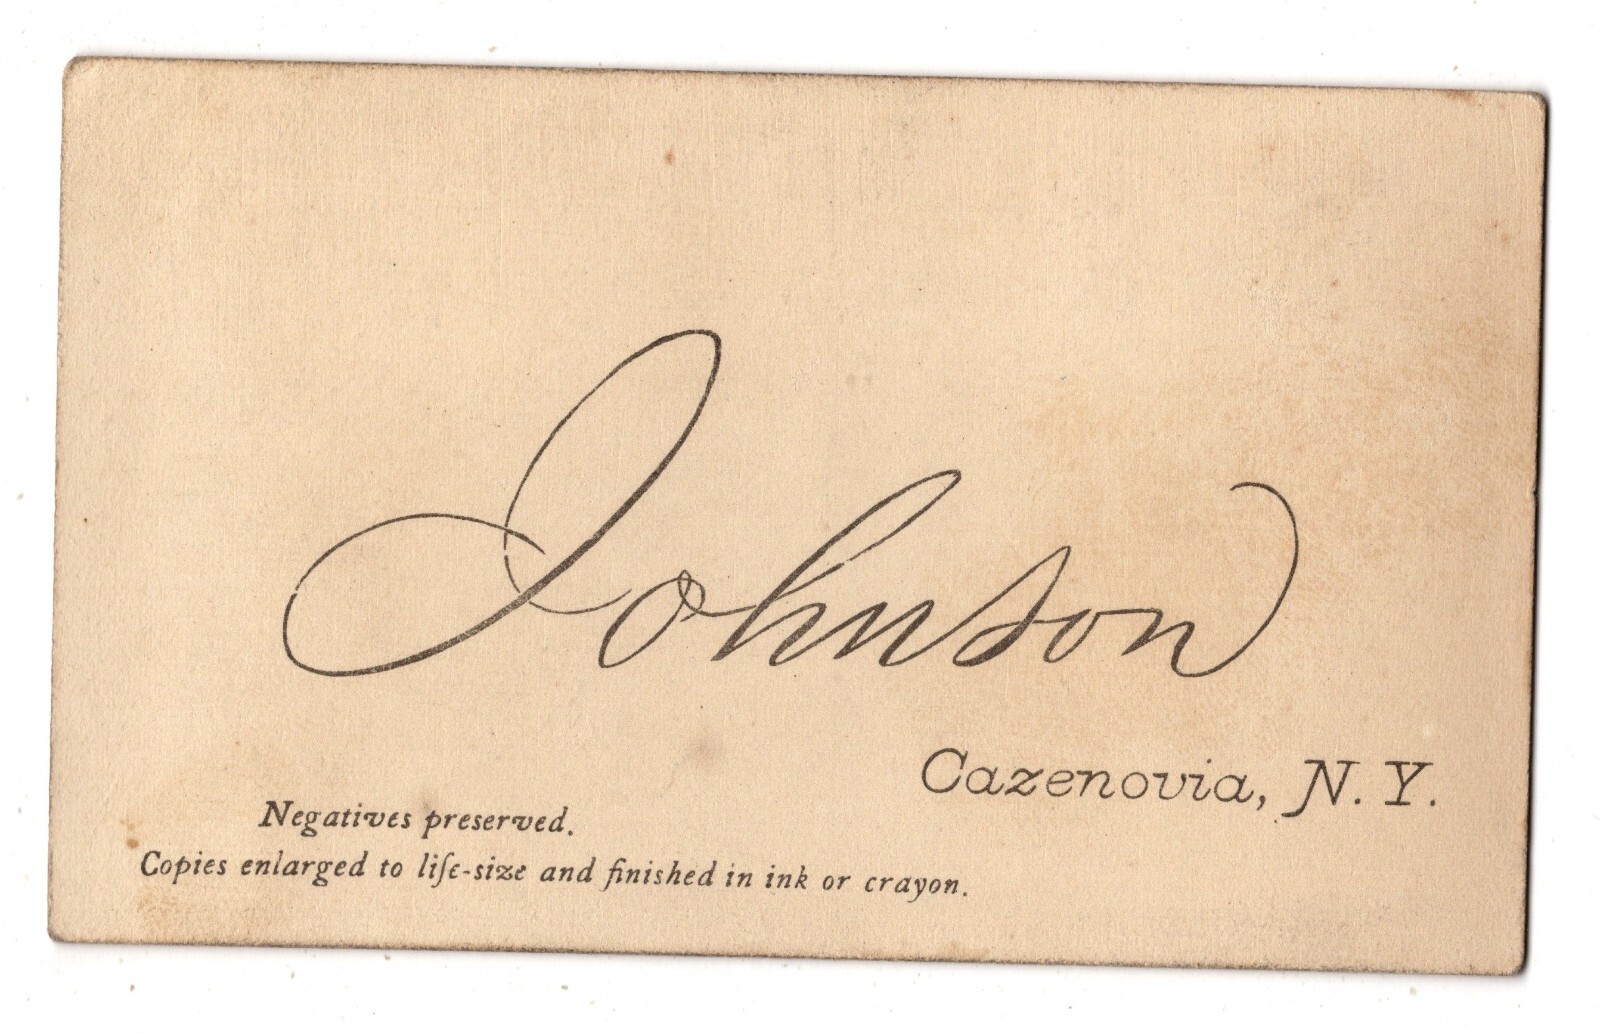 Johnson
Cazenovia, N. Y.
Negatives preserved.
Copies enlarged to life-size and finished in ink or crayon.